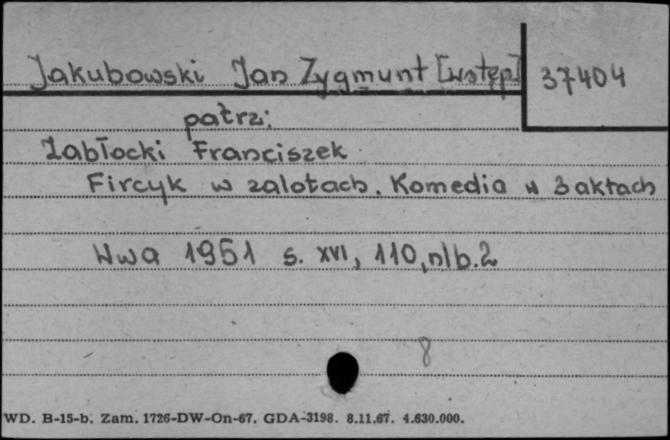 Jakubowski Jan Zygmunt [wstęp] 37404
patrz:
Zabłocki Franciszek
Fircyk w zalotach. Komedia w 3 aktach
Wwa 1951 s. XVI, 110, nlb. 2
8
WD. B-15-b. Zam. 1726-DW-On-67. GDA-3198. 8.11.67. 4.630.000.